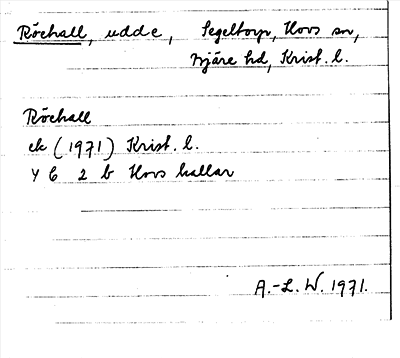 Röehall, udde, Segeltorp, Hovs sn,
Bjäre hd, Krist. l.
Röehall
ek (1971) Krist. l.
4 C 2 b Hovs hallar
A.-L. W. 1971.